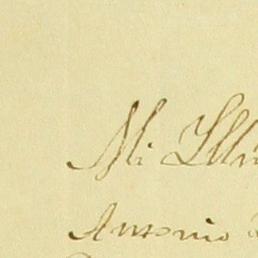 Mi Illm
Antonio